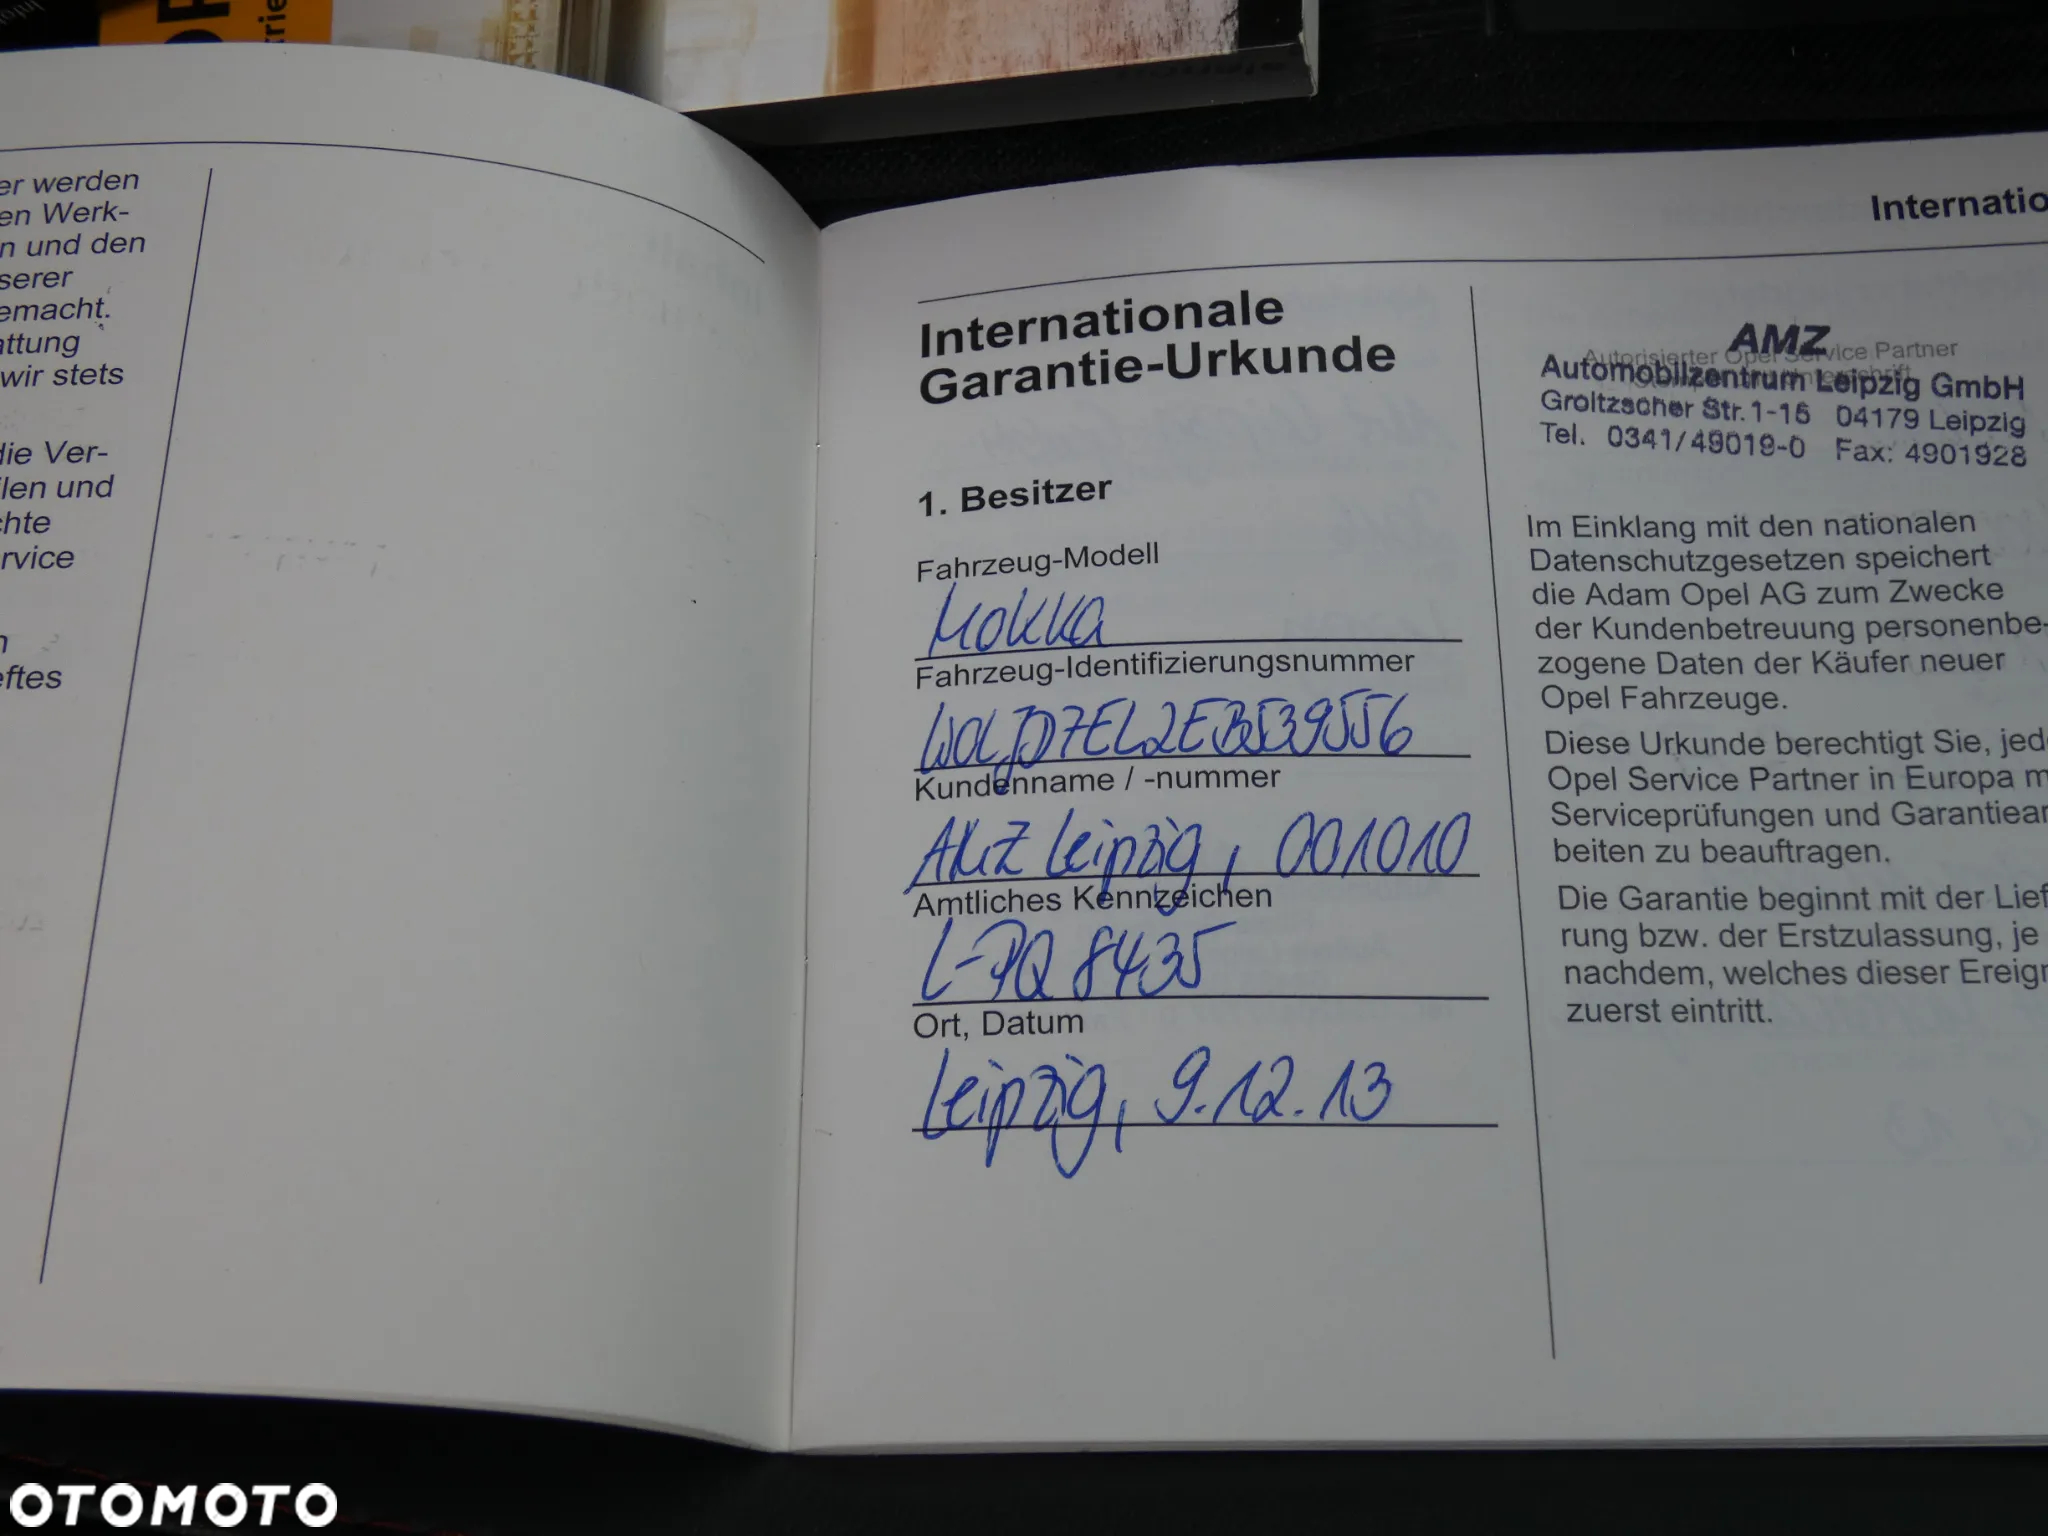 er werden
en Werk-
n und den
serer
emacht.
attung
wir stets
die Ver-
ilen und
chte
rvice
n
eftes
Internatio
Internationale
Garantie-Urkunde
1. Besitzer
Fahrzeug-Modell
Mokka
Fahrzeug-Identifizierungsnummer
W0LJD7EL2EB539556
Kundenname / -nummer
AMZ Leipzig, 001010
Amtliches Kennzeichen
L-PQ 8435
Ort, Datum
Leipzig, 9.12.13
AMZ
Autorisierter Opel Service Partner
Automobilzentrum Leipzig GmbH
Groitzscher Str. 1-15 04179 Leipzig
Tel. 0341/49019-0 Fax: 4901928
Im Einklang mit den nationalen
Datenschutzgesetzen speichert
die Adam Opel AG zum Zwecke
der Kundenbetreuung personenbe-
zogene Daten der Käufer neuer
Opel Fahrzeuge.
Diese Urkunde berechtigt Sie, jed
Opel Service Partner in Europa m
Serviceprüfungen und Garantiear
beiten zu beauftragen.
Die Garantie beginnt mit der Lief
rung bzw. der Erstzulassung, je
nachdem, welches dieser Ereign
zuerst eintritt.
OTOMOTO